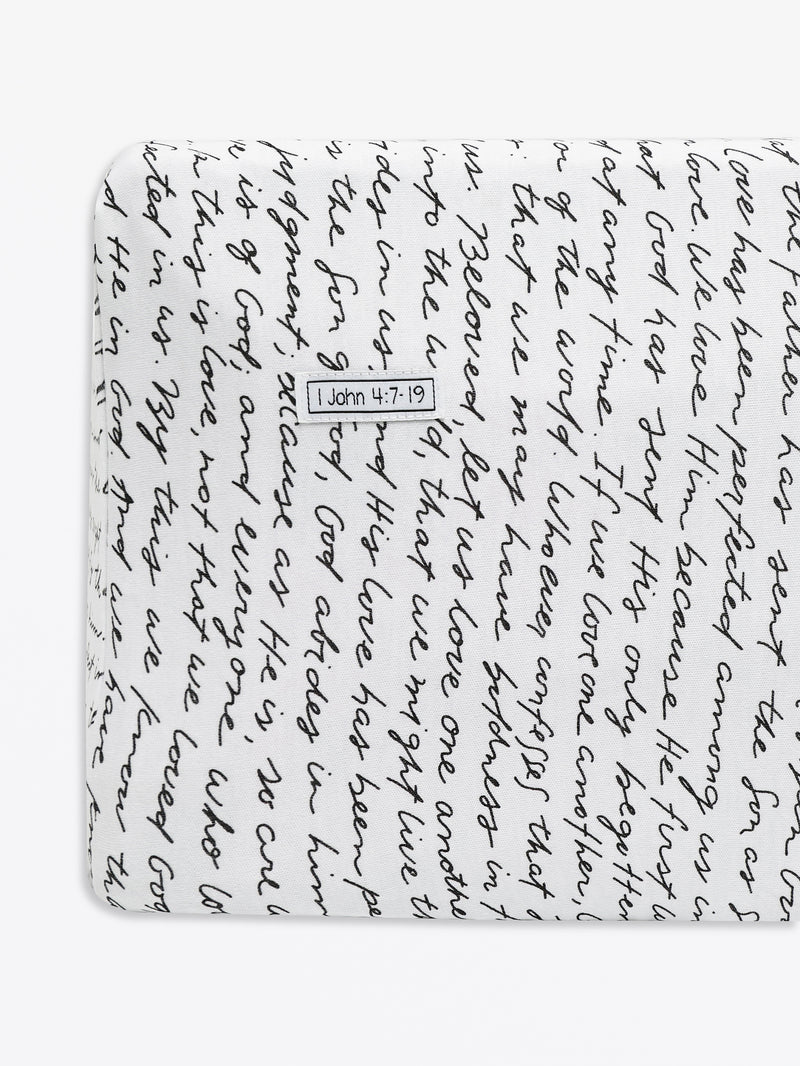 1 John 4:7-19
the Father has sent the Son as
love has been perfected among us in
love. We love Him because He first
God has sent His only begotten
at any time. If we love one another,
of the world. Whoever confesses that
that we may have boldness in
us. Beloved, let us love one
into the that we might live
in us, and His love has been
the Son God, God abides in him
judgment; because as He is, so are
is of God; and everyone who
this is love, not that we loved God
in us. By this we know
He in God. And we have